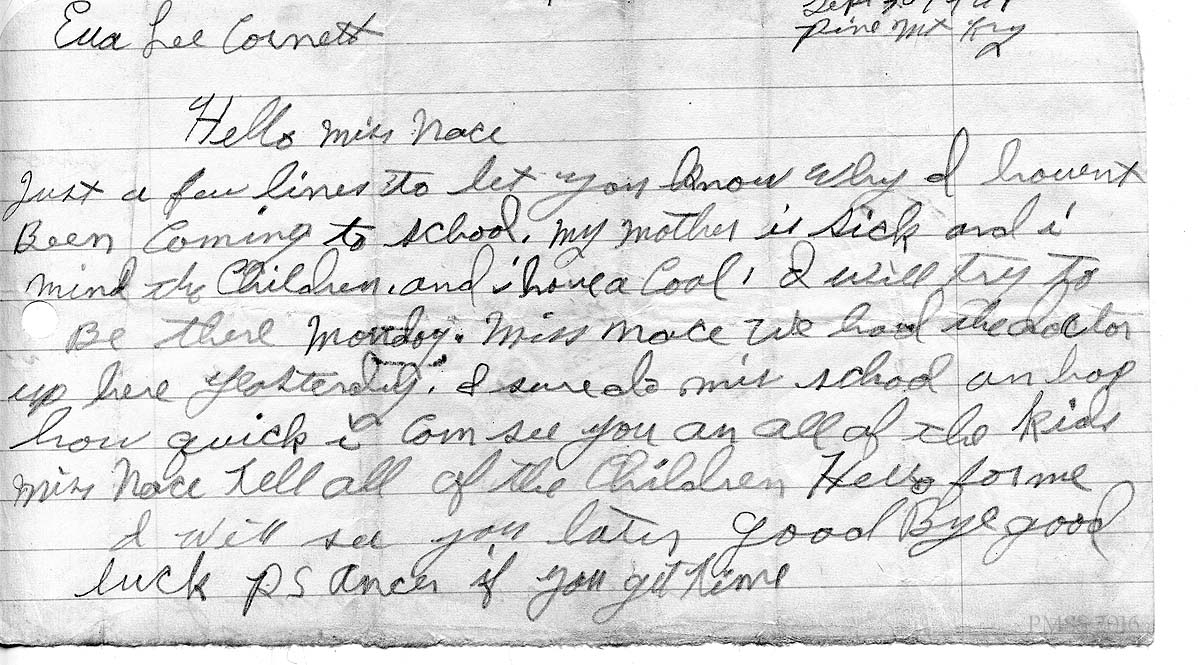 Eva Lee Cornett
Sept 30
Pine Mt Ky
Hello Miss Nace
Just a few lines to let you know why I havent
Been Coming to school. my mother is sick and i
mind the Children. and i have a Coal. I will try to
Be there Monday. Miss Nace we had the doctor
up here yesterday. I sure do mis school an hop
how quick i Com see you an all of the kids
Miss Nace tell all of the Children Hello for me
I will see you later good Bye good
luck PS Ancer if you get time
PMSS 2016